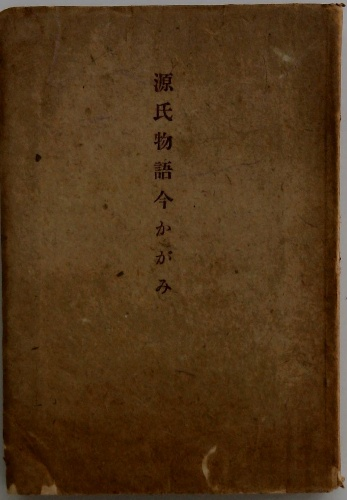 源氏物語今かがみ